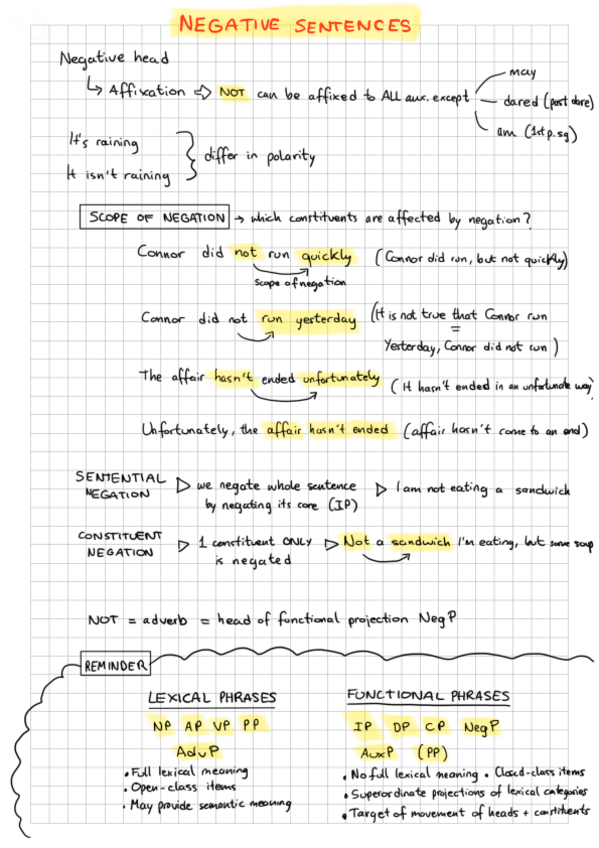 NEGATIVE SENTENCES
Negative head
↳ Affixation ⇨ NOT can be affixed to ALL aux. except
may
dared (past dare)
am (1st p.sg)
It's raining
It isn't raining
differ in polarity
SCOPE OF NEGATION → which constituents are affected by negation?
Connor did not run quickly (Connor did run, but not quickly)
scope of negation
Connor did not run yesterday (It is not true that Connor run
=
Yesterday, Connor did not run)
The affair hasn't ended unfortunately (It hasn't ended in an unfortunate way)
Unfortunately, the affair hasn't ended (affair hasn't come to an end)
SENTENTIAL NEGATION ▷ we negate whole sentence by negating its core (IP) ▷ I am not eating a sandwich
CONSTITUENT NEGATION ▷ 1 constituent ONLY is negated ▷ Not a sandwich I'm eating, but some soup
NOT = adverb = head of functional projection NegP
REMINDER
LEXICAL PHRASES
NP AP VP PP
AdvP
• Full lexical meaning
• Open-class items
• May provide semantic meaning
FUNCTIONAL PHRASES
IP DP CP NegP
AuxP (PP)
• No full lexical meaning • Closed-class items
• Superordinate projections of lexical categories
• Target of movement of heads + constituents